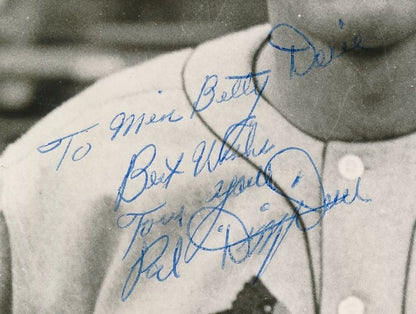 To Miss Betty Davie
Best Wishes
from your
Pal "Dizzy" Dean